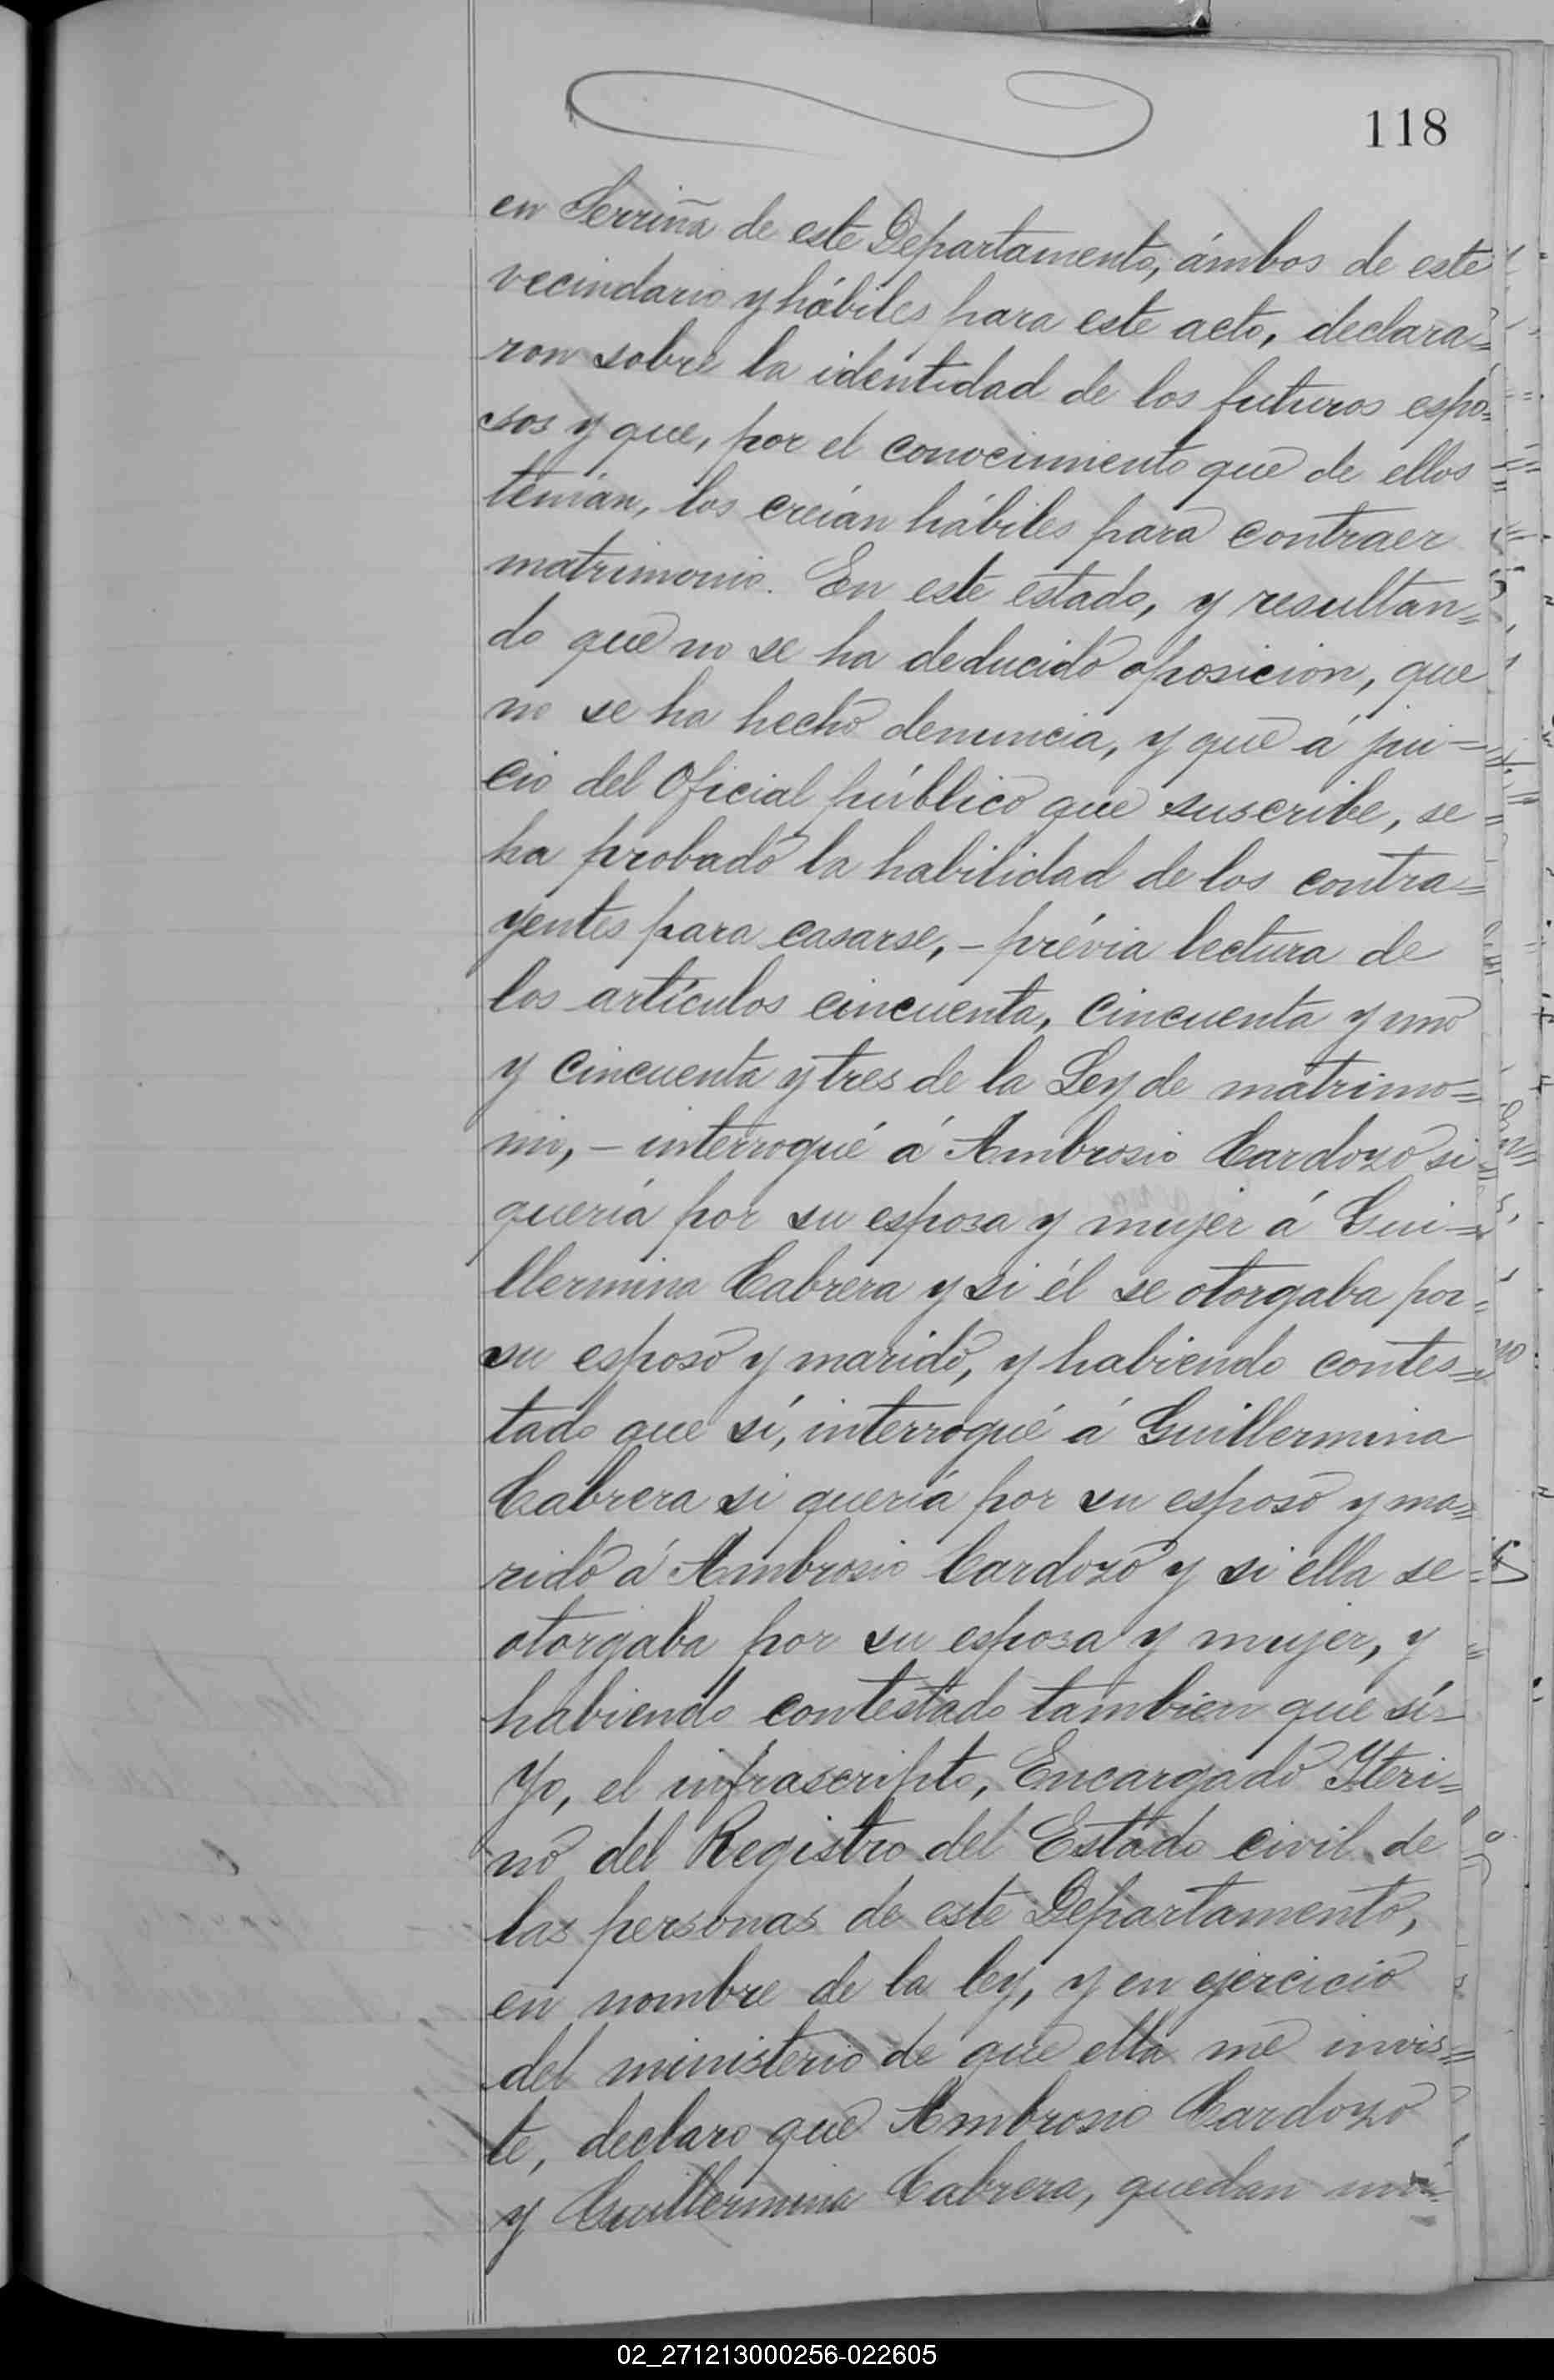 118
en Serriña de este Departamento, ámbos de este
vecindario y hábiles para este acto, declara=
ron sobre la identidad de los futuros espo=
sos y que, por el conocimiento que de ellos
tenían, los creían hábiles para contraer
matrimonio. En este estado, y resultan=
do que no se ha deducido oposicion, que
no se ha hecho denuncia, y que á jui=
cio del Oficial público que suscribe, se
ha probado la habilidad de los contra=
yentes para casarse, – prévia lectura de
los artículos cincuenta, cincuenta y uno
y cincuenta y tres de la Ley de matrimo=
nio, – interrogué á Ambrosio Cardozo si
quería por su esposa y mujer á Gui=
llermina Cabrera y si él se otorgaba por
su esposo y marido, y habiendo contes=
tado que sí, interrogué á Guillermina
Cabrera si quería por su esposo y ma=
rido á Ambrosio Cardozo y si ella se
otorgaba por su esposa y mujer, y
habiendo contestado tambien que sí –
Yo, el infrascripto, Encargado Yteri=
no del Registro del Estado civil de
las personas de este Departamento,
en nombre de la ley, y en ejercicio
del ministerio de que ella me invis=
te, declaro que Ambrosio Cardozo
y Guillermina Cabrera, quedan
02_271213000256-022605